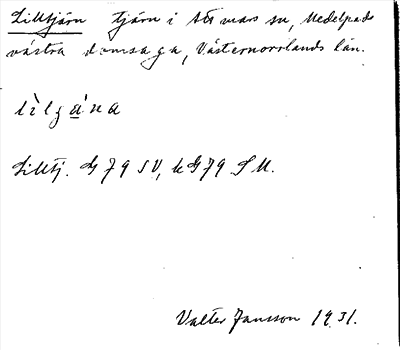 Lilltjärn tjärn i Attmars sn, Medelpads
västra domsaga, Västernorrlands län.
lìlgá̱na
Lilltj. G 79 SV, kG79 SU.
Valter Jansson 1931.